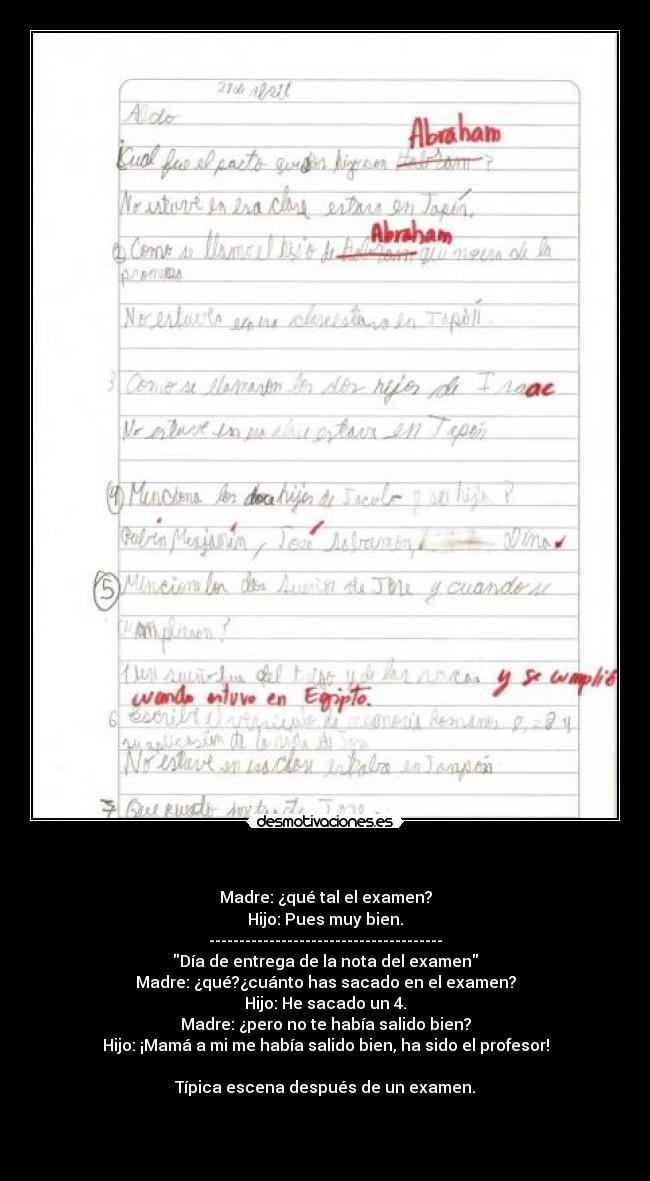 28 de abril
Aldo
Abraham
Cual fue el pacto que Dios hizo con Habram ?
No estuve en esa clase estava en Japón.
Abraham
2 Como se llamo el hijo de Habram que no era de la
promesa
No estuve en esa clase estava en Japón.
3 Como se llamaron los dos hijos de Isaac
No estuve en esa clase estava en Japón
4 Menciona los doce hijos de Jacob y su hija ?
Rubén, Menjamín, José Dina
5 Mencione los dos sueños de Jose y cuando se
cumplieron?
1 un sueño fue del trigo y de las vacas y se cumplió
cuando estuvo en Egipto.
6 Escribe el versiculo de memoria Romanos 8,28 y
su aplicasión de la vida de Jose
No estuve en esa clase estaba en Janpón
7 Que puedo de Jose
desmotivaciones.es
Madre: ¿qué tal el examen?
Hijo: Pues muy bien.
---------------------------------------
"Día de entrega de la nota del examen"
Madre: ¿qué?¿cuánto has sacado en el examen?
Hijo: He sacado un 4.
Madre: ¿pero no te había salido bien?
Hijo: ¡Mamá a mi me había salido bien, ha sido el profesor!
Típica escena después de un examen.